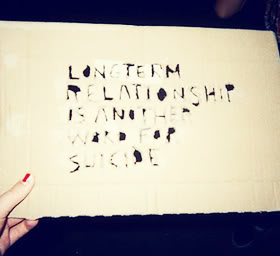 LONGTERM
RELATIONSHIP
IS ANOTHER
WORD FOR
SUICIDE